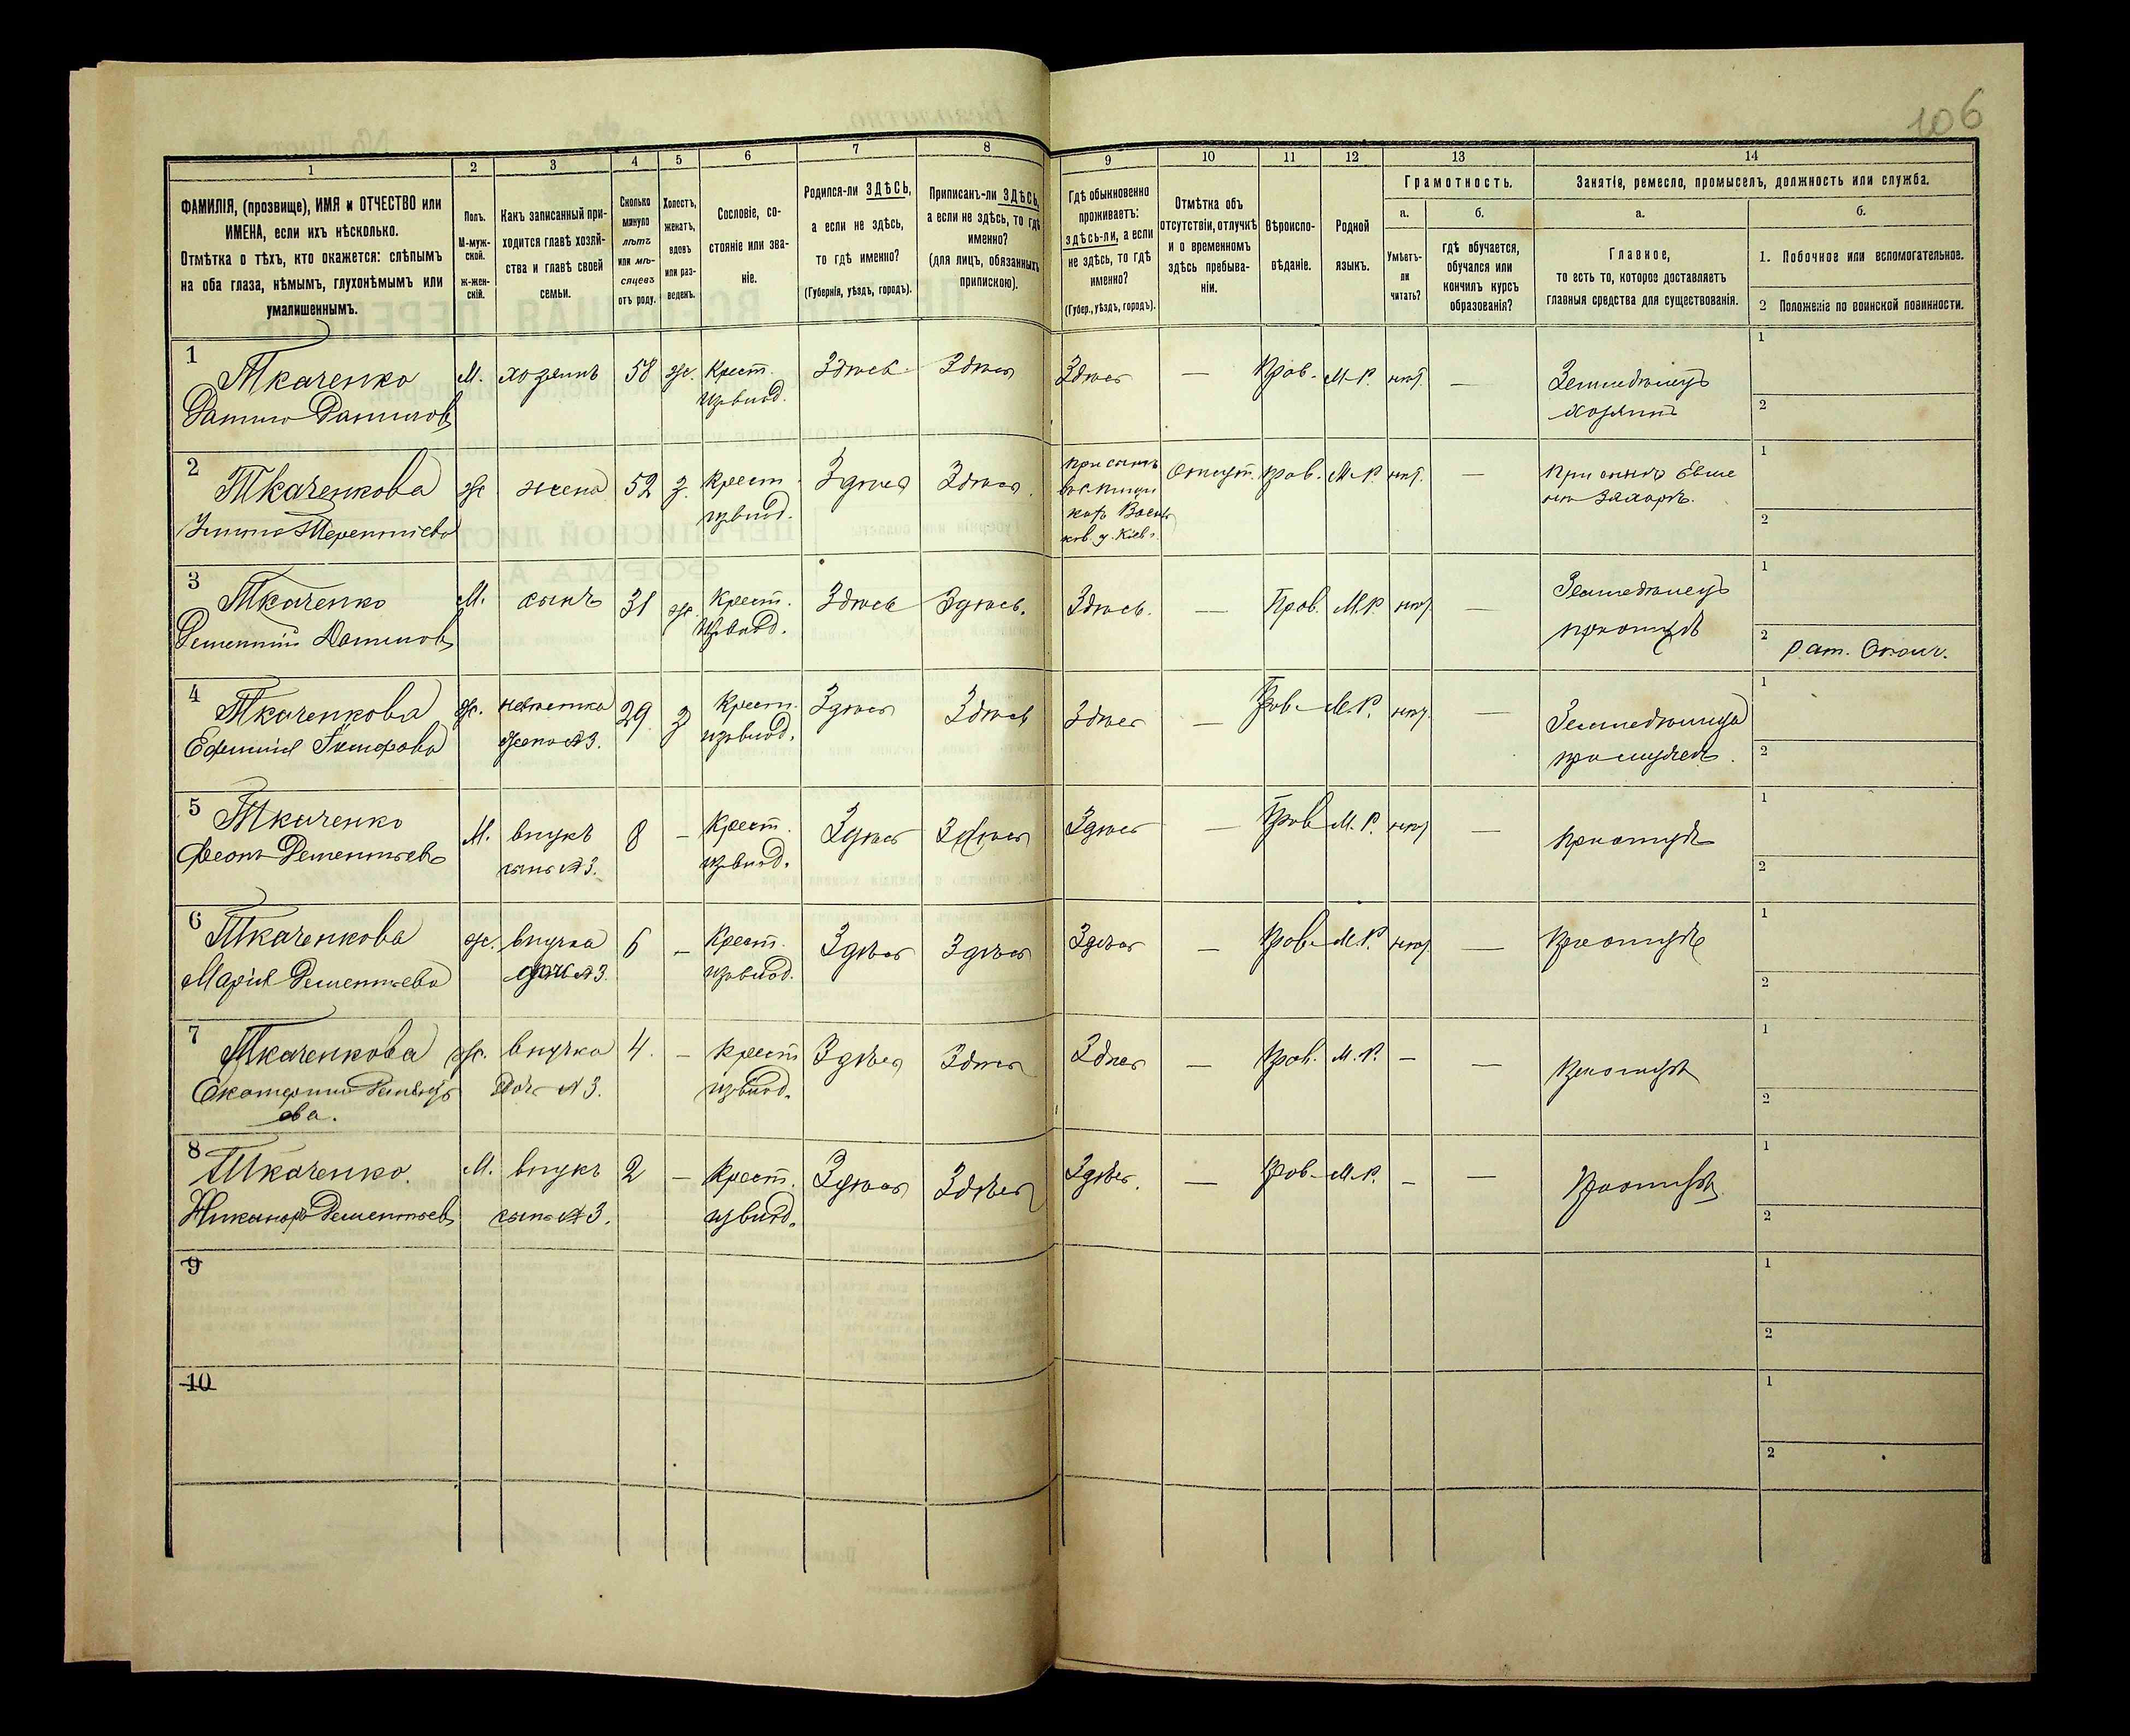 106
1
2
3
4
5
6
7
8
9
10
11
12
13
14
ФАМИЛІЯ, (прозвище), ИМЯ и ОТЧЕСТВО или
ИМЕНА, если ихъ нѣсколько.
Отмѣтка о тѣхъ, кто окажется: слѣпымъ
на оба глаза, нѣмымъ, глухонѣмымъ или
умалишеннымъ.
Полъ.
М-муж-
ской.
ж-жен-
скій.
Какъ записанный при-
ходится главѣ хозяй-
ства и главѣ своей
семьи.
Сколько
минуло
лѣтъ
или мѣ-
сяцевъ
отъ роду.
Холостъ,
женатъ,
вдовъ
или раз-
веденъ.
Сословіе, со-
стояніе или зва-
ніе.
Родился-ли ЗДѢСЬ,
а если не здѣсь,
то гдѣ именно?
(Губернія, уѣздъ, городъ).
Приписанъ-ли ЗДѢСЬ,
а если не здѣсь, то гдѣ
именно?
(для лицъ, обязанныхъ
припискою).
Гдѣ обыкновенно
проживаетъ:
здѣсь-ли, а если
не здѣсь, то гдѣ
именно?
(Губер., уѣздъ, городъ).
Отмѣтка объ
отсутствіи, отлучкѣ
и о временномъ
здѣсь пребыва-
ніи.
Вѣроиспо-
вѣданіе.
Родной
языкъ.
Грамотность.
а.
Умѣетъ-
ли
читать?
б.
гдѣ обучается,
обучался или
кончилъ курсъ
образованія?
Занятіе, ремесло, промыселъ, должность или служба.
а.
Главное,
то есть то, которое доставляетъ
главныя средства для существованія.
б.
1. Побочное или вспомогательное.
2 Положеніе по воинской повинности.
1
Ткаченко
Данило Даниловъ
М.
хозяинъ
58
ж.
Крест.
изъ влад.
Здѣсь
Здѣсь
Здѣсь
—
Прав.
М.Р.
нѣт.
—
Земледѣлецъ
хозяинъ
1
2
2
Ткаченкова
Терентіева
ж
жена
52
з.
Крест.
изъ влад.
Здѣсь
Здѣсь
при сынѣ
ков. у. Кіев.
Отсут.
Прав.
М.Р.
нѣт.
—
При сынѣ
1
2
3
Ткаченко
Дементій Даниловъ
М.
сынъ
31
ж.
Крест.
изъ влад.
Здѣсь
Здѣсь.
Здѣсь.
—
Прав.
М.Р.
нѣт
—
Земледѣлецъ
при отцѣ
1
2
Рат. Ополч.
4
Ткаченкова
Ефимія
ж.
невѣстка
жена №3.
29
з
Крест.
изъ влад.
Здѣсь
Здѣсь
Здѣсь
—
Прав.
М.Р.
нѣт.
—
Земледѣлица
при мужѣ
1
2
5
Ткаченко
Дементьевъ
М.
внукъ
сынъ №3.
8
—
Крест.
изъ влад.
Здѣсь
Здѣсь
Здѣсь
—
Прав
М.Р.
нѣт
—
при отцѣ
1
2
6
Ткаченкова
Марія Дементьева
ж.
внучка
дочь №3.
6
—
Крест.
изъ влад.
Здѣсь
Здѣсь
Здѣсь
—
Прав.
М.Р.
нѣт
—
При отцѣ
1
2
7
Ткаченкова
Екатерина Дементь
ева.
ж.
внучка
Дочь №3.
4.
—
Крест
изъ влад.
Здѣсь
Здѣсь
Здѣсь
—
Прав.
М.Р.
—
—
При отцѣ
1
2
8
Ткаченко.
Никаноръ Дементьевъ
М.
внукъ
сынъ №3.
2
—
Крест.
изъ влад.
Здѣсь
Здѣсь
Здѣсь.
—
Прав.
М.Р.
—
—
При отцѣ
1
2
9
1
2
10
1
2